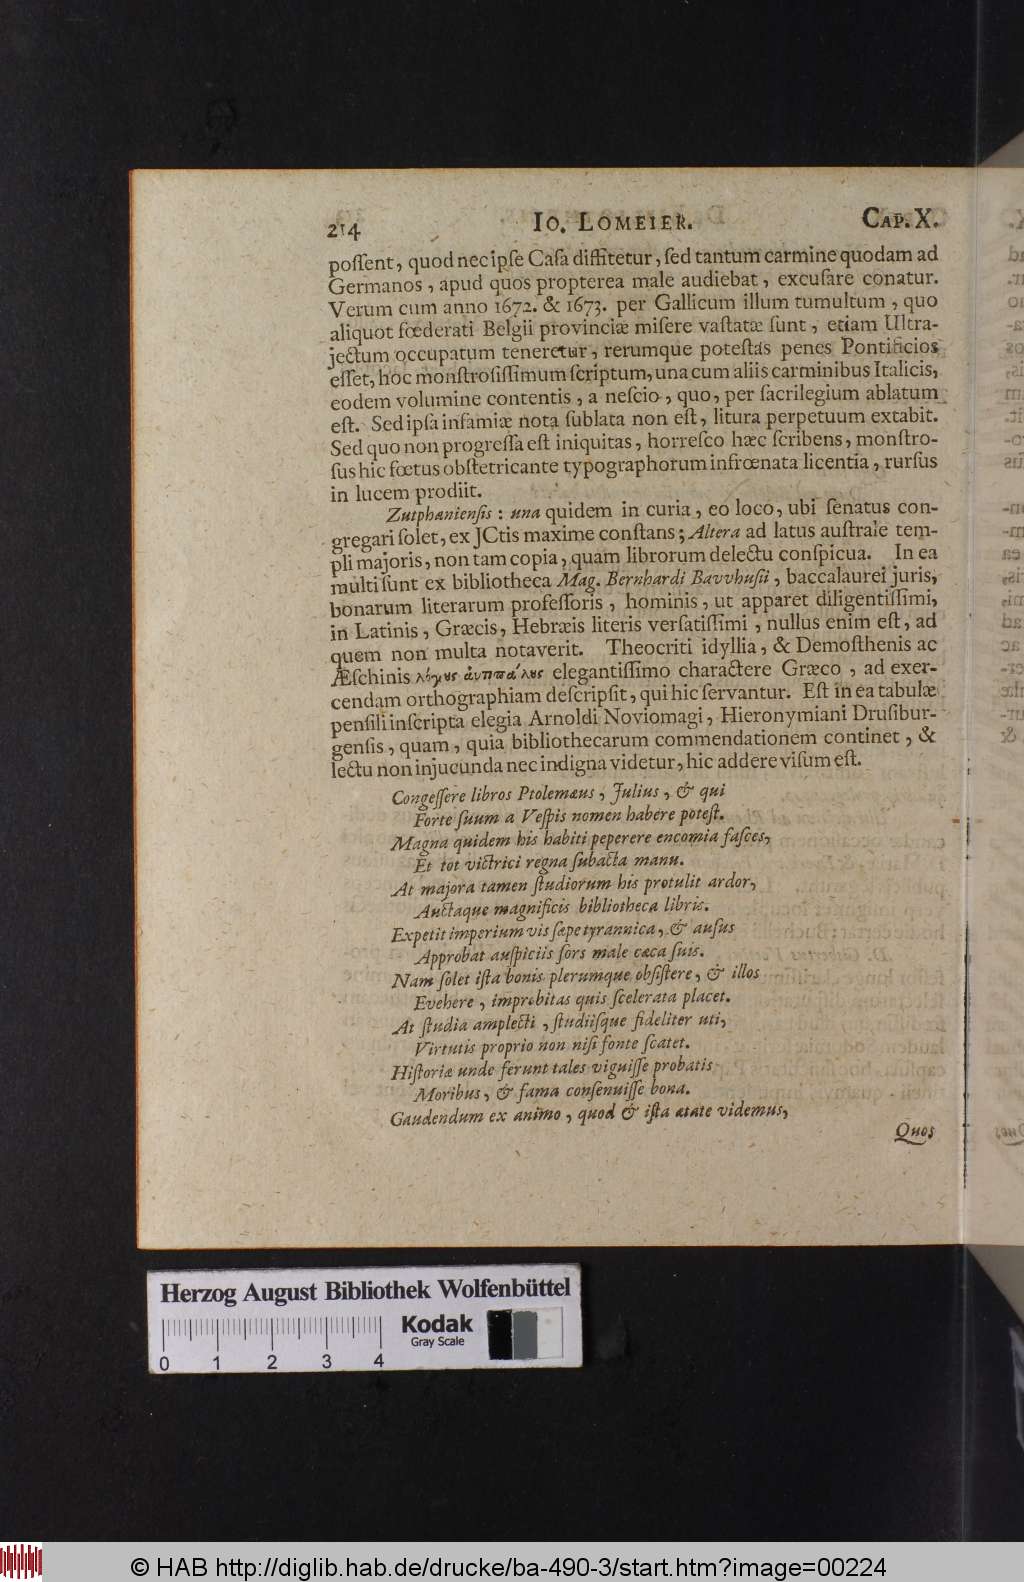 214 IO. LOMEIER. CAP. X.
poſſent, quod nec ipſe Caſa diffitetur, ſed tantum carmine quodam ad
Germanos, apud quos propterea male audiebat, excuſare conatur.
Verum cum anno 1672. & 1673. per Gallicum illum tumultum, quo
aliquot fœderati Belgii provinciæ miſere vaſtatæ ſunt, etiam Ultra-
jectum occupatum teneretur, rerumque poteſtas penes Pontificios
eſſet, hoc monſtroſiſſimum ſcriptum, una cum aliis carminibus Italicis,
eodem volumine contentis, a neſcio, quo, per ſacrilegium ablatum
eſt. Sed ipſa infamiæ nota ſublata non eſt, litura perpetuum extabit.
Sed quo non progreſſa eſt iniquitas, horreſco hæc ſcribens, monſtro-
ſus hic fœtus obſtetricante typographorum infrœnata licentia, rurſus
in lucem prodiit.
Zutphanienſis: una quidem in curia, eo loco, ubi ſenatus con-
gregari ſolet, ex JCtis maxime conſtans; Altera ad latus auſtrale tem-
pli majoris, non tam copia, quam librorum delectu conſpicua. In ea
multi ſunt ex bibliotheca Mag. Bernhardi Bavvhuſii, baccalaurei juris,
bonarum literarum profeſſoris, hominis, ut apparet diligentiſſimi,
in Latinis, Græcis, Hebræis literis verſatiſſimi, nullus enim eſt, ad
quem non multa notaverit. Theocriti idyllia, & Demoſthenis ac
Æſchinis elegantiſſimo charactere Græco, ad exer-
cendam orthographiam deſcripſit, qui hic ſervantur. Eſt in ea tabulæ
penſili inſcripta elegia Arnoldi Noviomagi, Hieronymiani Druſibur-
genſis, quam, quia bibliothecarum commendationem continet, &
lectu non injucunda nec indigna videtur, hic addere viſum eſt.
Congeſſere libros Ptolemæus, Julius, & qui
Forte ſuum a Veſpis nomen habere poteſt.
Magna quidem his habiti peperere encomia faſces,
Et tot victrici regna ſubacta manu.
At majora tamen ſtudiorum his protulit ardor,
Auctaque magnificis bibliotheca libris.
Expetit imperium vis ſæpe tyrannica, & auſus
Approbat auſpiciis ſors male cæca ſuis.
Nam ſolet iſta bonis plerumque obſiſtere, & illos
Evehere, improbitas quis ſcelerata placet.
At ſtudia amplecti, ſtudiiſque fideliter uti,
Virtutis proprio non niſi fonte ſcatet.
Hiſtoriæ unde ferunt tales viguiſſe probatis
Moribus, & fama conſenuiſſe bona.
Gaudendum ex animo, quod & iſta ætate videmus,
Quos
Herzog August Bibliothek Wolfenbüttel
Kodak
Gray Scale
0 1 2 3 4
© HAB http://diglib.hab.de/drucke/ba-490-3/start.htm?image=00224